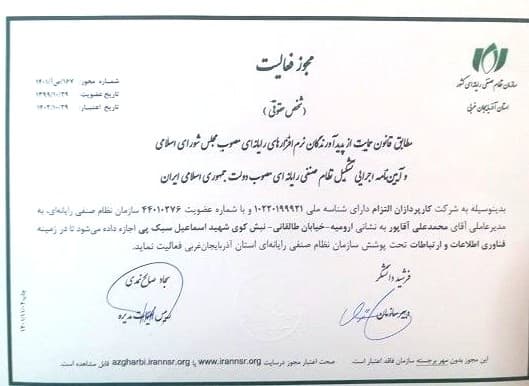 مجوز فعالیت
(شخص حقوقی)
سازمان نظام صنفی رایانه‌ای کشور
استان آذربایجان غربی
شماره مجوز: ۱۶۷/ص‌آ/۱۴۰۱
تاریخ عضویت: ۱۳۹۹/۱۰/۲۹
تاریخ اعتبار: ۱۴۰۲/۱۰/۲۹
مطابق قانون حمایت از پدیدآورندگان نرم افزارهای رایانه‌ای مصوب مجلس شورای اسلامی
و آیین‌نامه اجرایی تشکیل نظام صنفی رایانه‌ای مصوب دولت جمهوری اسلامی ایران
بدینوسیله به شرکت کارپردازان التزام دارای شناسه ملی ۱۰۲۲۰۱۹۹۹۲۱ و با شماره عضویت ۴۴۰۱۰۲۷۶ سازمان نظام صنفی رایانه‌ای، به
مدیرعاملی آقای محمدعلی آقاپور به نشانی ارومیه-خیابان طالقانی- نبش کوی شهید اسماعیل سبک پی اجازه داده می‌شود تا در زمینه
فناوری اطلاعات و ارتباطات تحت پوشش سازمان نظام صنفی رایانه‌ای استان آذربایجان‌غربی فعالیت نماید.
فرشید دانشگر
دبیر سازمان
سجاد صالح‌محمدی
رئیس هیات مدیره
این مجوز بدون مهر برجسته سازمان فاقد اعتبار است. صحت اعتبار مجوز درسایت www.irannsr.org یا azgharbi.irannsr.org قابل مشاهده است.